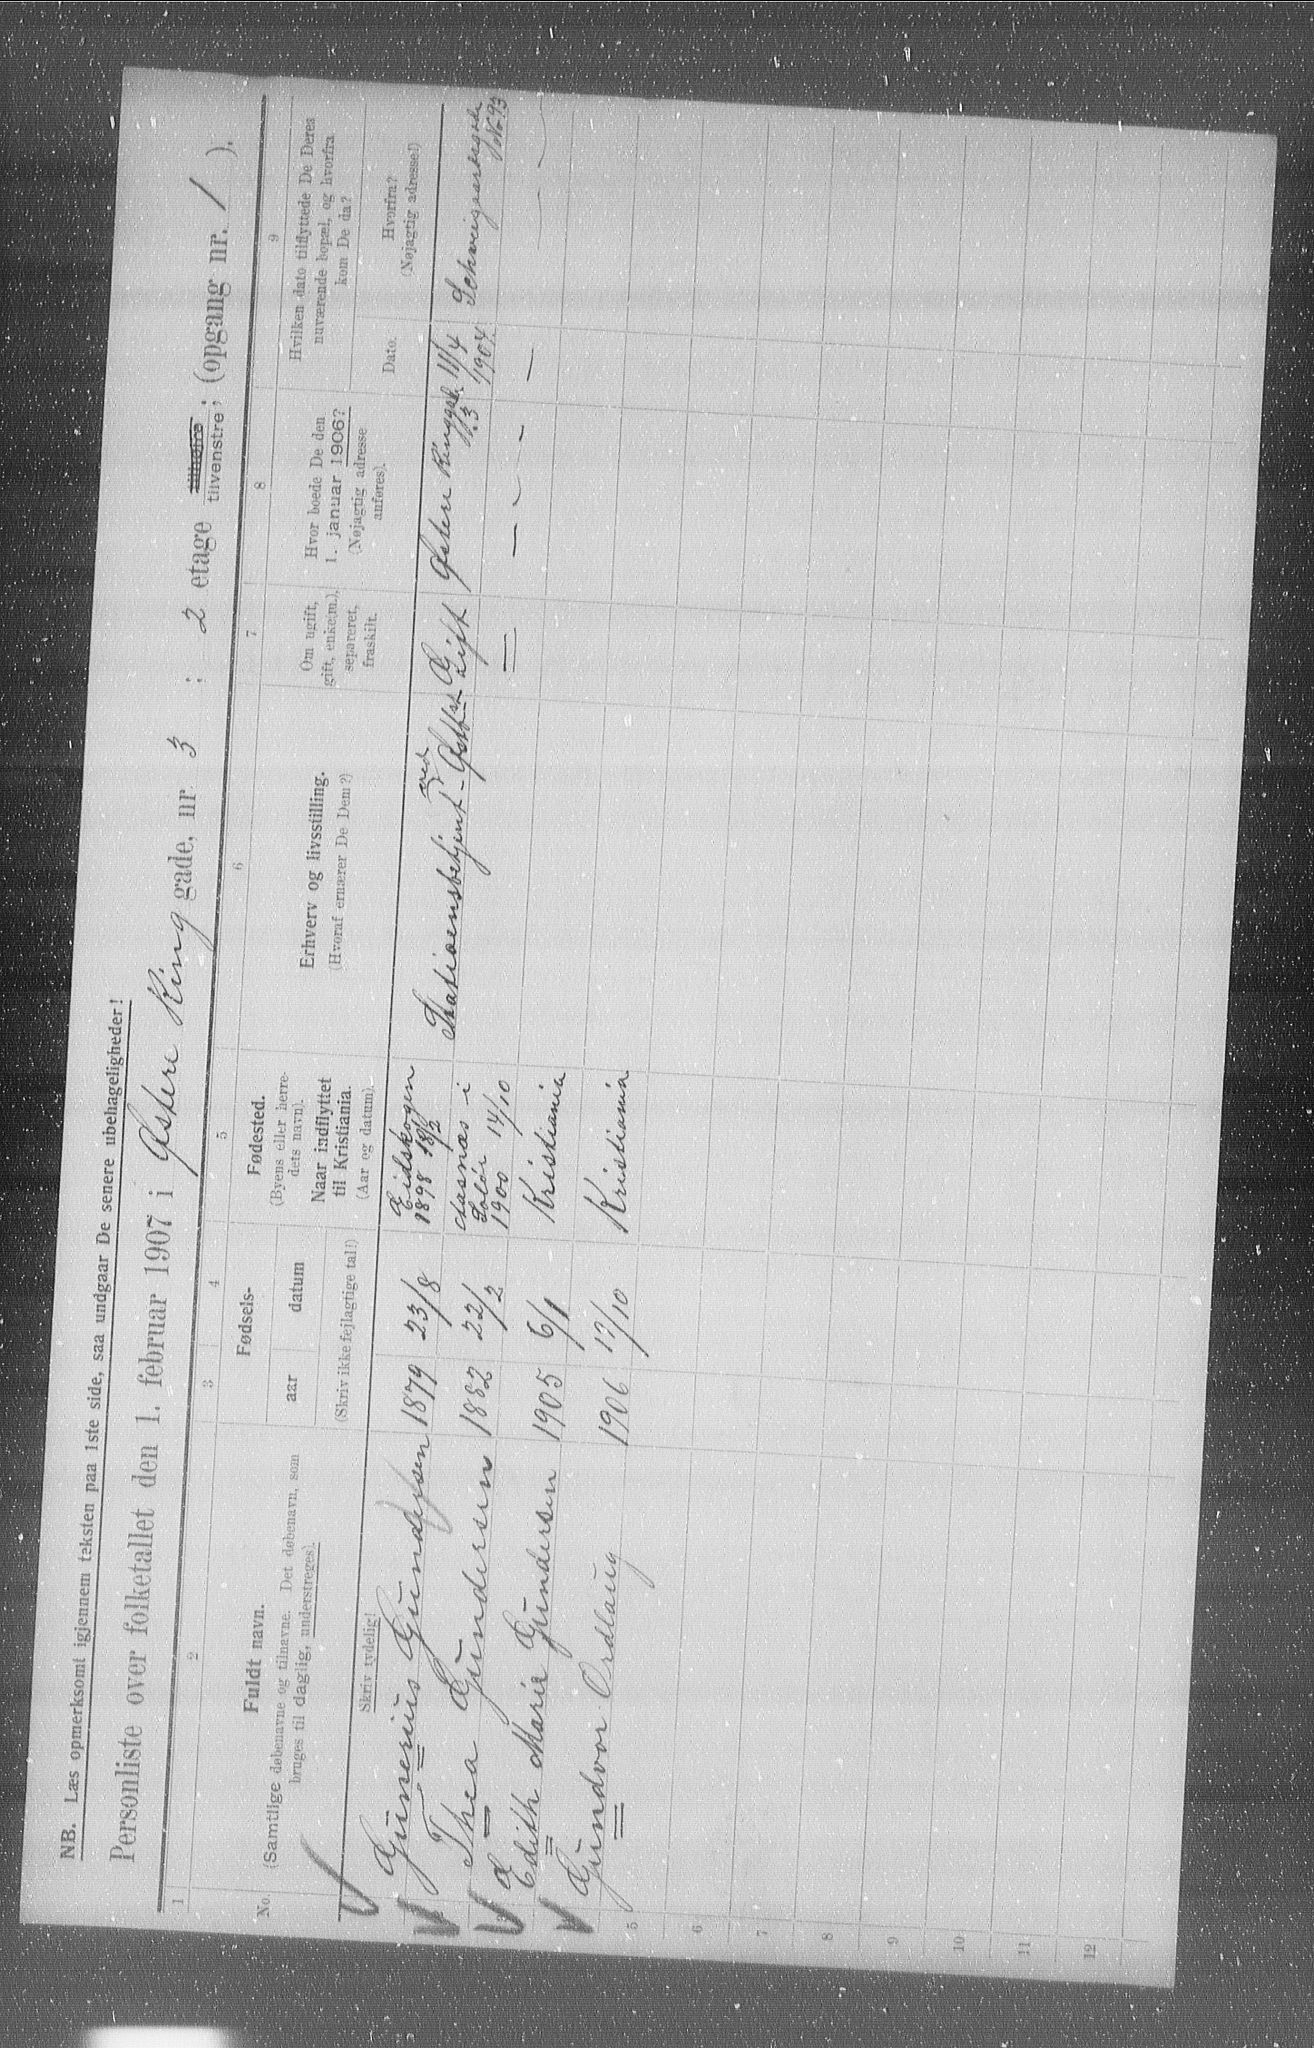 NB. Læs opmerksomt igjennem teksten paa 1ste side, saa undgaar De senere ubehageligheder!
Personliste over folketallet den 1. februar 1907 i Østere Ring gade, nr 3 : 2 etage tilhøire tilvenstre; (opgang nr. 1 ).
1 2 3 4 5 6 7 8 9
No
Fuldt navn.
(Samtlige døbenavne og tilnavne. Det døbenavn, som
bruges til daglig, understreges).
Skriv tydelig!
Fødsels-
aar datum
(Skriv ikke fejlagtige tal!)
Fødested.
(Byens eller herre-
dets navn).
Naar indflyttet
til Kristiania.
(Aar og datum).
Erhverv og livsstilling.
(Hvoraf ernærer De Dem?)
Om ugift,
gift, enke(m.),
separeret,
fraskilt.
Hvor boede De den
1. januar 1906?
(Nøjagtig adresse
anføres).
Hvilken dato tilflyttede De Deres
nuværende bopæl, og hvorfra
kom De da?
Dato.
Hvorfra?
(Nøjagtig adresse!)
Gunerius Gundersen 1879 23/8 Eidskogen 1898 Stationsbetjent ved Gift Østere Ringgd. N. 3 11/4 1904 Schweigaardsgade No 93
Thea Gundersen 1882 22/2 Aasnæs i Solør 1900 14/10 Gift
Edith Marie Gundersen 1905 6/1 Kristiania
Gundvor Ordlaug 1906 17/10 Kristiania
5
6
7
8
9
10
11
12